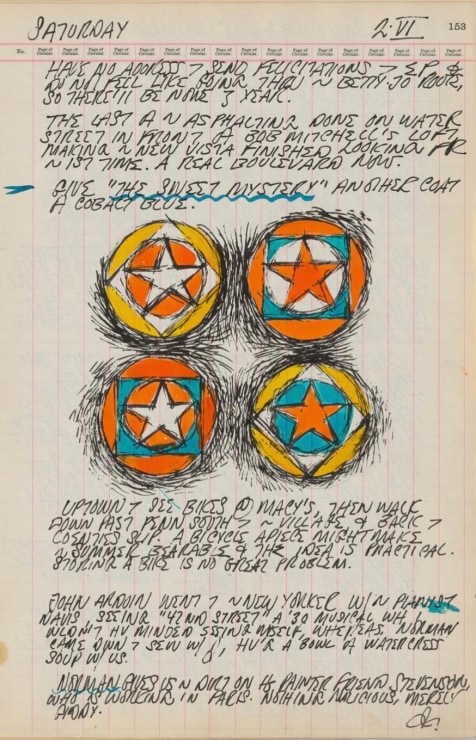 SATURDAY 2·VI 153
No. Page of Circular. Page of Circular. Page of Circular. Page of Circular. Page of Circular. Page of Circular. Page of Circular. Page of Circular. Page of Circular. Page of Circular. Page of Circular. Page of Circular. Page of Circular. Page of Circular.
HAVE NO ADDRESS SEND FELICITATIONS &
DO NOT FEEL LIKE GOING THRU BETTY-JO
SO THERE'LL BE NONE YEAR.
THE LAST ASPHALTING DONE ON WATER
STREET IN FRONT BOB MITCHELL'S LOFT
MAKING NEW VISTA FINISHED LOOKING FR
1ST TIME. A REAL BOULEVARD NOW.
GIVE "THE SWEET MYSTERY" ANOTHER COAT
COBALT BLUE.
UPTOWN SEE BIKES @ MACY'S, THEN WALK
DOWN PAST PENN SOUTH VILLAGE & BACK
COENTIES SLIP. A BICYCLE APIECE MIGHT MAKE
SUMMER BEARABLE & THE IDEA IS PRACTICAL.
STORING A BIKE IS NO GREAT PROBLEM.
JOHN WENT NEW YORKER W/ PIANIST
SEEING "42ND STREET" A '30 MUSICAL
MINDED SEEING MYSELF, WHEREAS NORMAN
CAME DOWN SEW W/ HV'R A BOWL WATERCRESS
SOUP W/ US.
NORMAN DIRT ON PAINTER FRIEND STEVENSON,
WHO IS WORKING IN PARIS. NOTHING MALICIOUS, MERELY